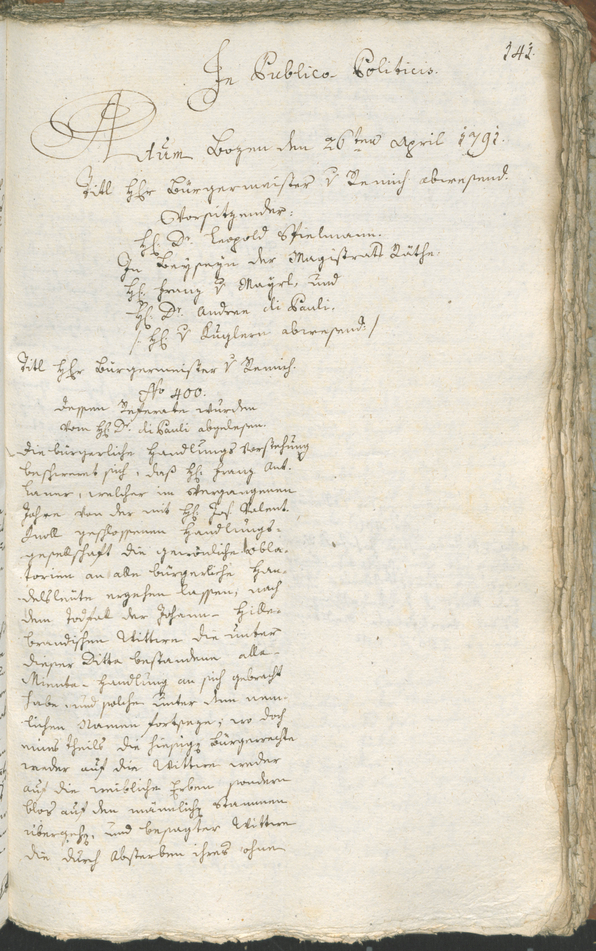 141.
In Publico Politicis.
Actum Bozen den 26ten April 1791.
Titl HHr Bürgermeister v Remich abwesend.
Vorsitzender:
H. Dr. Leopold Spielmann.
In Beyseyn der Magistratts Räthe:
H. Franz v Mayrl, und
H. Dr. Andree di Pauli.
/: H. v Kuglern abwesend :/
Titl HHr Bürgermeister v Remich.
No 400.
dessen Referate wurden
vom H. Dr. di Pauli abgelesen.
Die bürgerliche Handlungs Vorstehung
beschweret sich, daß H. Franz Ant.
, welcher im vergangenen
Jahre von der mit H. Jos. Valent.
Knoll geschlossenen Handlungs-
gesellschaft die gewönliche obla-
torien an alle bürgerliche Han-
delsleute ergehen lassen, nach
dem Todfal der Johann- Hille-
brandischen Wittwe die unter
dieser Ditta bestandene alla-
Minuta- Handlung an sich gebracht
habe, und solche unter dem nem-
lichen Namen fortseze; wo doch
eines theils die hiesige Bürgerrechte
weder auf die Wittwe weder
auf die weibliche Erben sondern
blos auf den männlichen Stammen
übergehen, und besagter Wittwe
die durch Absterben ihres ohne